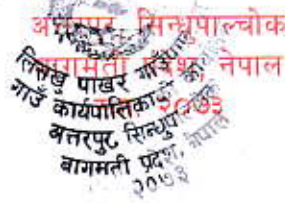 अत्तरपुर, सिन्धुपाल्चोक
बागमती प्रदेश, नेपाल
२०७३
लिसंखु पाखर गाउँपालिका
गाउँ कार्यपालिकाको
अत्तरपुर, सिन्धुपा
बागमती प्रदेश, नेपाल
२०७३